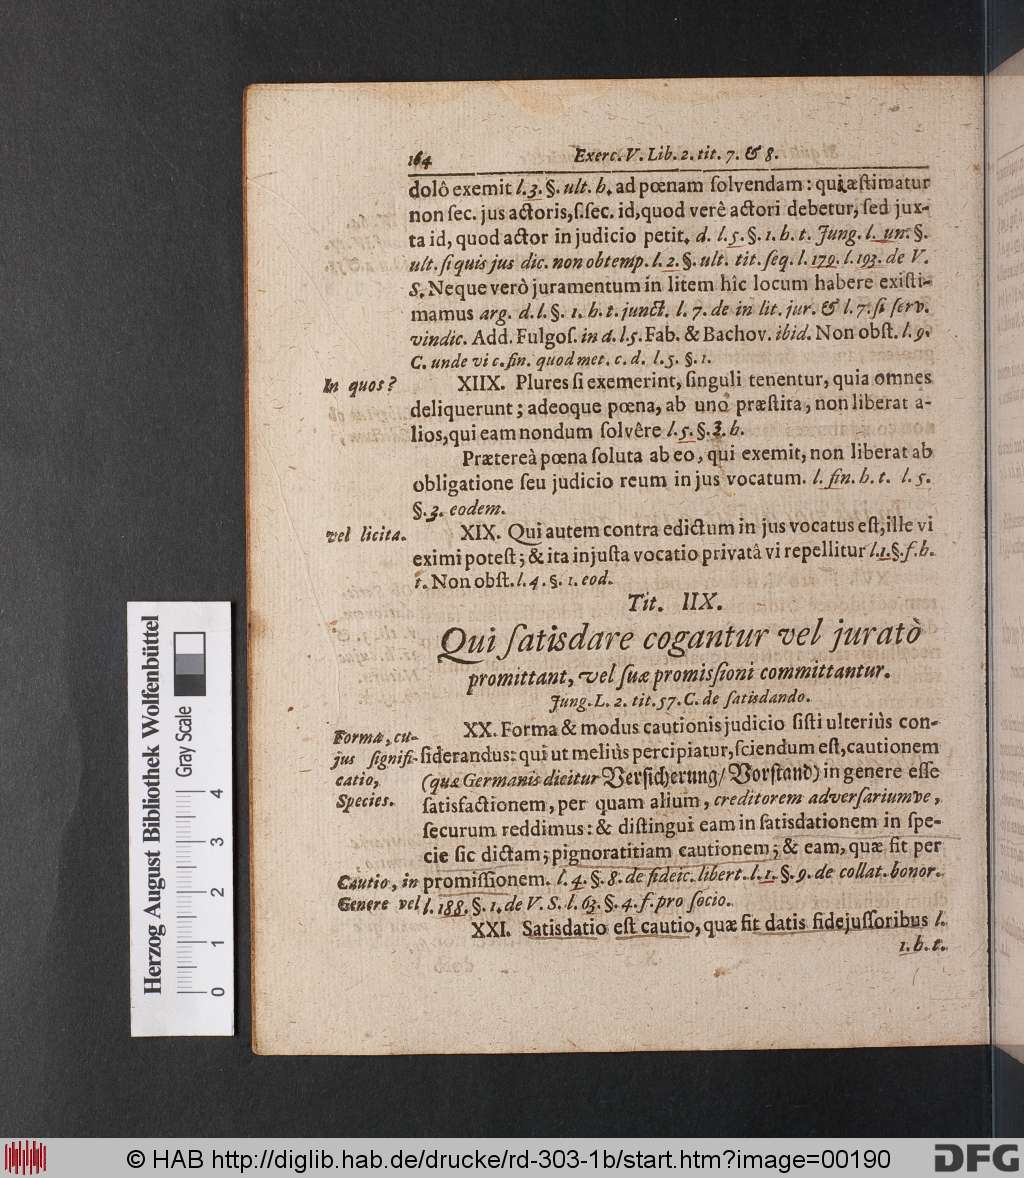 164
Exerc. V. Lib. 2. tit. 7. & 8.
dolô exemit l. 3. §. ult. h. ad pœnam ſolvendam: qui æſtimatur
non ſec. jus actoris, ſ. ſec. id, quod verè actori debetur, ſed jux-
ta id, quod actor in judicio petit. d. l. 5. §. 1. h. t. Jung. l. un. §.
ult. ſi quis jus dic. non obtemp. l. 2. §. ult. tit. ſeq. l. 179. l. 193. de V.
S. Neque verò juramentum in litem hîc locum habere exiſti-
mamus arg. d. l. §. 1. h. t. junct. l. 7. de in lit. jur. & l. 7. ſi ſerv.
vindic. Add. Fulgoſ. in d. l. 5. Fab. & Bachov. ibid. Non obſt. l. 9.
C. unde vi c. fin. quod met. c. d. l. 5. §. 1.
In quos?
XIIX. Plures ſi exemerint, ſinguli tenentur, quia omnes
deliquerunt; adeoque pœna, ab uno præſtita, non liberat a-
lios, qui eam nondum ſolvêre l. 5. §. 3. h.
Prætereà pœna ſoluta ab eo, qui exemit, non liberat ab
obligatione ſeu judicio reum in jus vocatum. l. fin. h. t. l. 5.
§. 3. eodem.
vel licita.
XIX. Qui autem contra edictum in jus vocatus eſt, ille vi
eximi poteſt; & ita injuſta vocatio privatâ vi repellitur l. 1. §. f. h.
t. Non obſt. l. 4. §. 1. eod.
Tit. IIX.
Qui ſatisdare cogantur vel juratò
promittant, vel ſuæ promiſſioni committantur.
Jung. L. 2. tit. 57. C. de ſatisdando.
XX. Forma & modus cautionis judicio ſiſti ulteriùs con-
ſiderandus: qui ut meliùs percipiatur, ſciendum eſt, cautionem
(quæ Germanis dicitur Verſicherung/ Vorſtand) in genere eſſe
ſatisfactionem, per quam alium, creditorem adverſariumve,
ſecurum reddimus: & diſtingui eam in ſatisdationem in ſpe-
cie ſic dictam; pignoratitiam cautionem; & eam, quæ fit per
promiſſionem. l. 4. §. 8. de fideic. libert. l. 1. §. 9. de collat. bonor.
l. 188. §. 1. de V. S. l. 63. §. 4. f. pro ſocio.
Forma, cu-
jus ſignifi-
catio,
Species.
Cautio, in
Genere vel
XXI. Satisdatio eſt cautio, quæ fit datis fidejuſſoribus l.
1. h. t.
Herzog August Bibliothek Wolfenbüttel
Gray Scale
0 1 2 3 4
© HAB http://diglib.hab.de/drucke/rd-303-1b/start.htm?image=00190
DFG